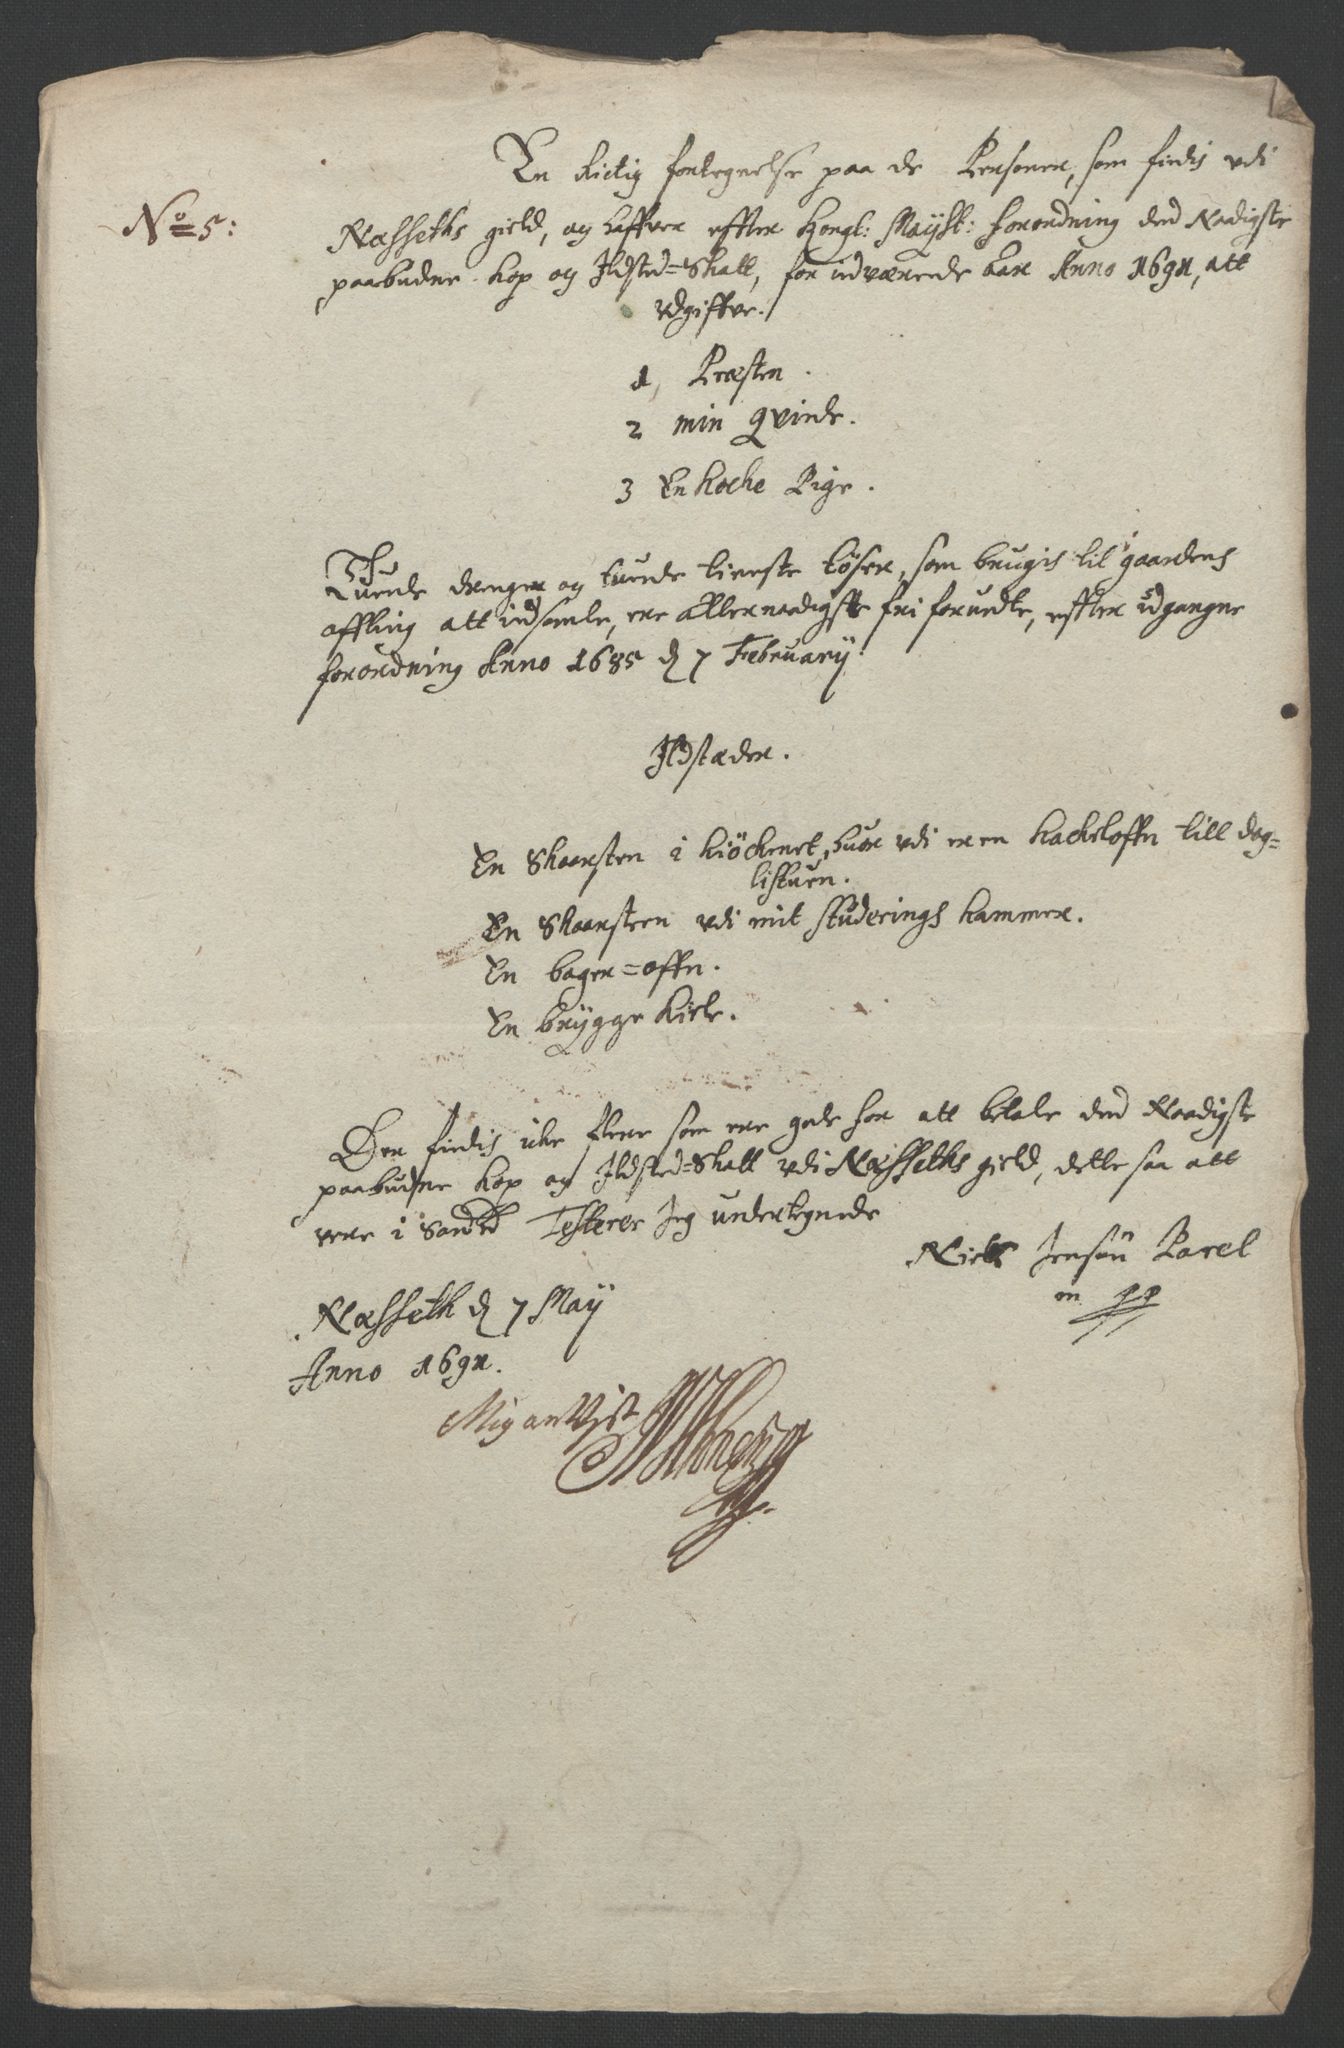 En Rictig fortegnelse paa de Personer, som findis udi
No 5:
Næsseths gield, og haffver effter Kongl: Mayst: forordning den Naadigste
paabudne Kop og Ildsted=Skatt, for indværende Aar Anno 1691, att
udgiffve.
1, Præsten.
2 min Qvinde.
3 En Kocke Pige.
Tuende drenger og tuende tieneste tøser, som brugis til gaardens
affling att indsamle, ere allernaadigst fri forundte, effter udgangne
forordning Anno 1685 d 7 Februarij
Ildstæder.
En Skaarsten i Kiöckenet, huor udi er en Kackeloffn till dag=
listuen.
En Skaarsteen udi mit studerings Kammer.
En bager=offn.
En brygge Kiele.
Der findis icke flere som ere gode for att betale den Naadigste
paabudne Kop og Ildsted=Skatt udi Næsseths gield, dette saa att
vere i Sandhed Testerer Jeg underteignede
Niels Jensøn Parel
m pp
Næsseth d 7 May
Anno 1691.
Mig anvist